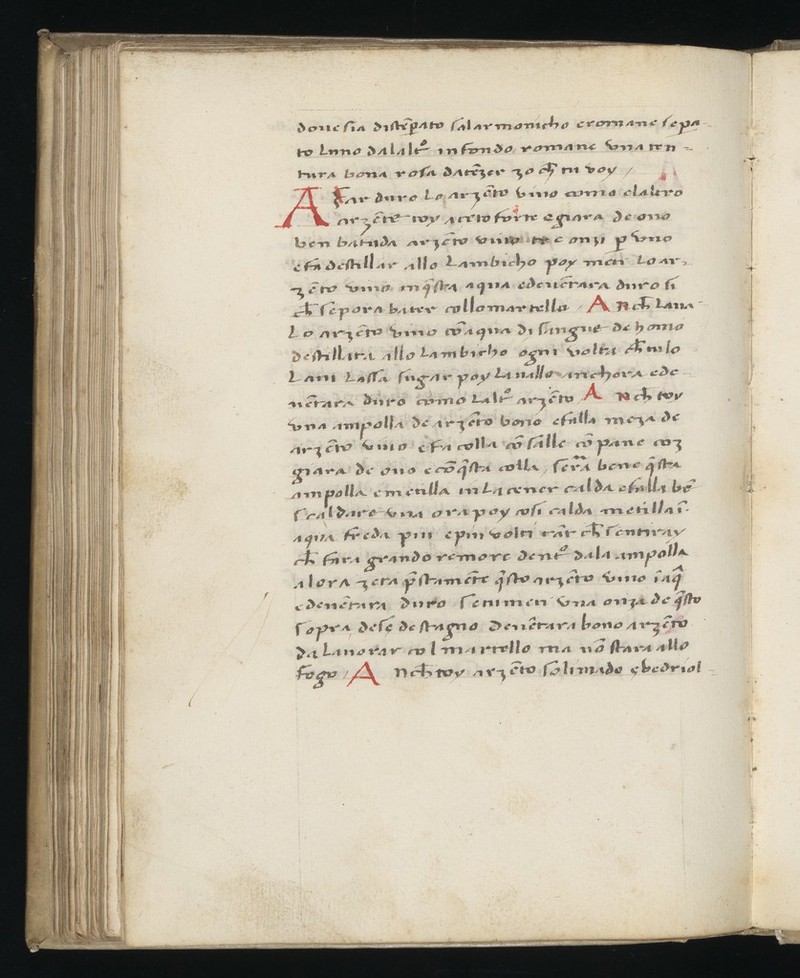 doue sia distẽpato salarmonicho e romane sepa-
to luno dalaltº in fondo romane vna ten-
tura bona rosa datẽzer zo ch̃ tu voy /
A far duro lo arzẽto viuo como elaltro
arzẽto toy aceto forte e giara de ouo
ben batuda arzẽto viuo onzi p vno
e fa destillar allo lambicho poy meti lo ar-
zẽto viuo in q̃sta aqua e deuẽtara duro si
ch̃ se pora bater collo martello / Anch̃ laua
lo arzẽto viuo cõ aqua di sangue de homo
destillata allo lambicho ogni volta ch̃ tu lo
laui lassa sugar poy laualło anchora e de-
uẽtara duro como laltº arzẽto Anch̃ toy
vna ampolla de arzẽto bono e falla meza de
arzẽto viuo e fa colla cõ salle cõ pane coz
giara de ouo e cõ q̃sta colla sera bene q̃sta
ampolla e metilla in la cener calda e falla bẽ
scaldare vna ora poy cosi calda metilla ĩ
aqua freda piu e piu volti tãt ch̃ sentiray
ch̃ fara grando remore dentº dala ampolla
alora zeta p̃stamẽte q̃sto arzẽto viuo ĩ aq̃
e deuẽtara duro se tu meti vna onza de q̃sto
sopra dese de stagno deuẽtara bono arzẽto
da lauorar col martello ma nõ stara allo
fogo / Anch̃ toy arzẽto solimado e vedriol-